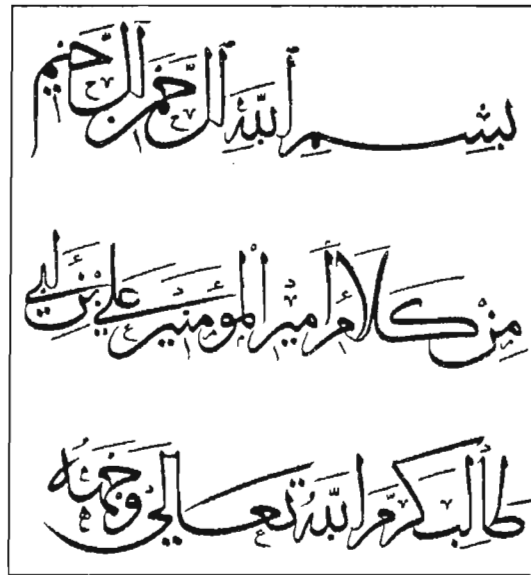 بسم الله الرحمن الرحيم
من كلام أمير المؤمنين علي بن أبي
طالب كرم الله تعالى وجهه